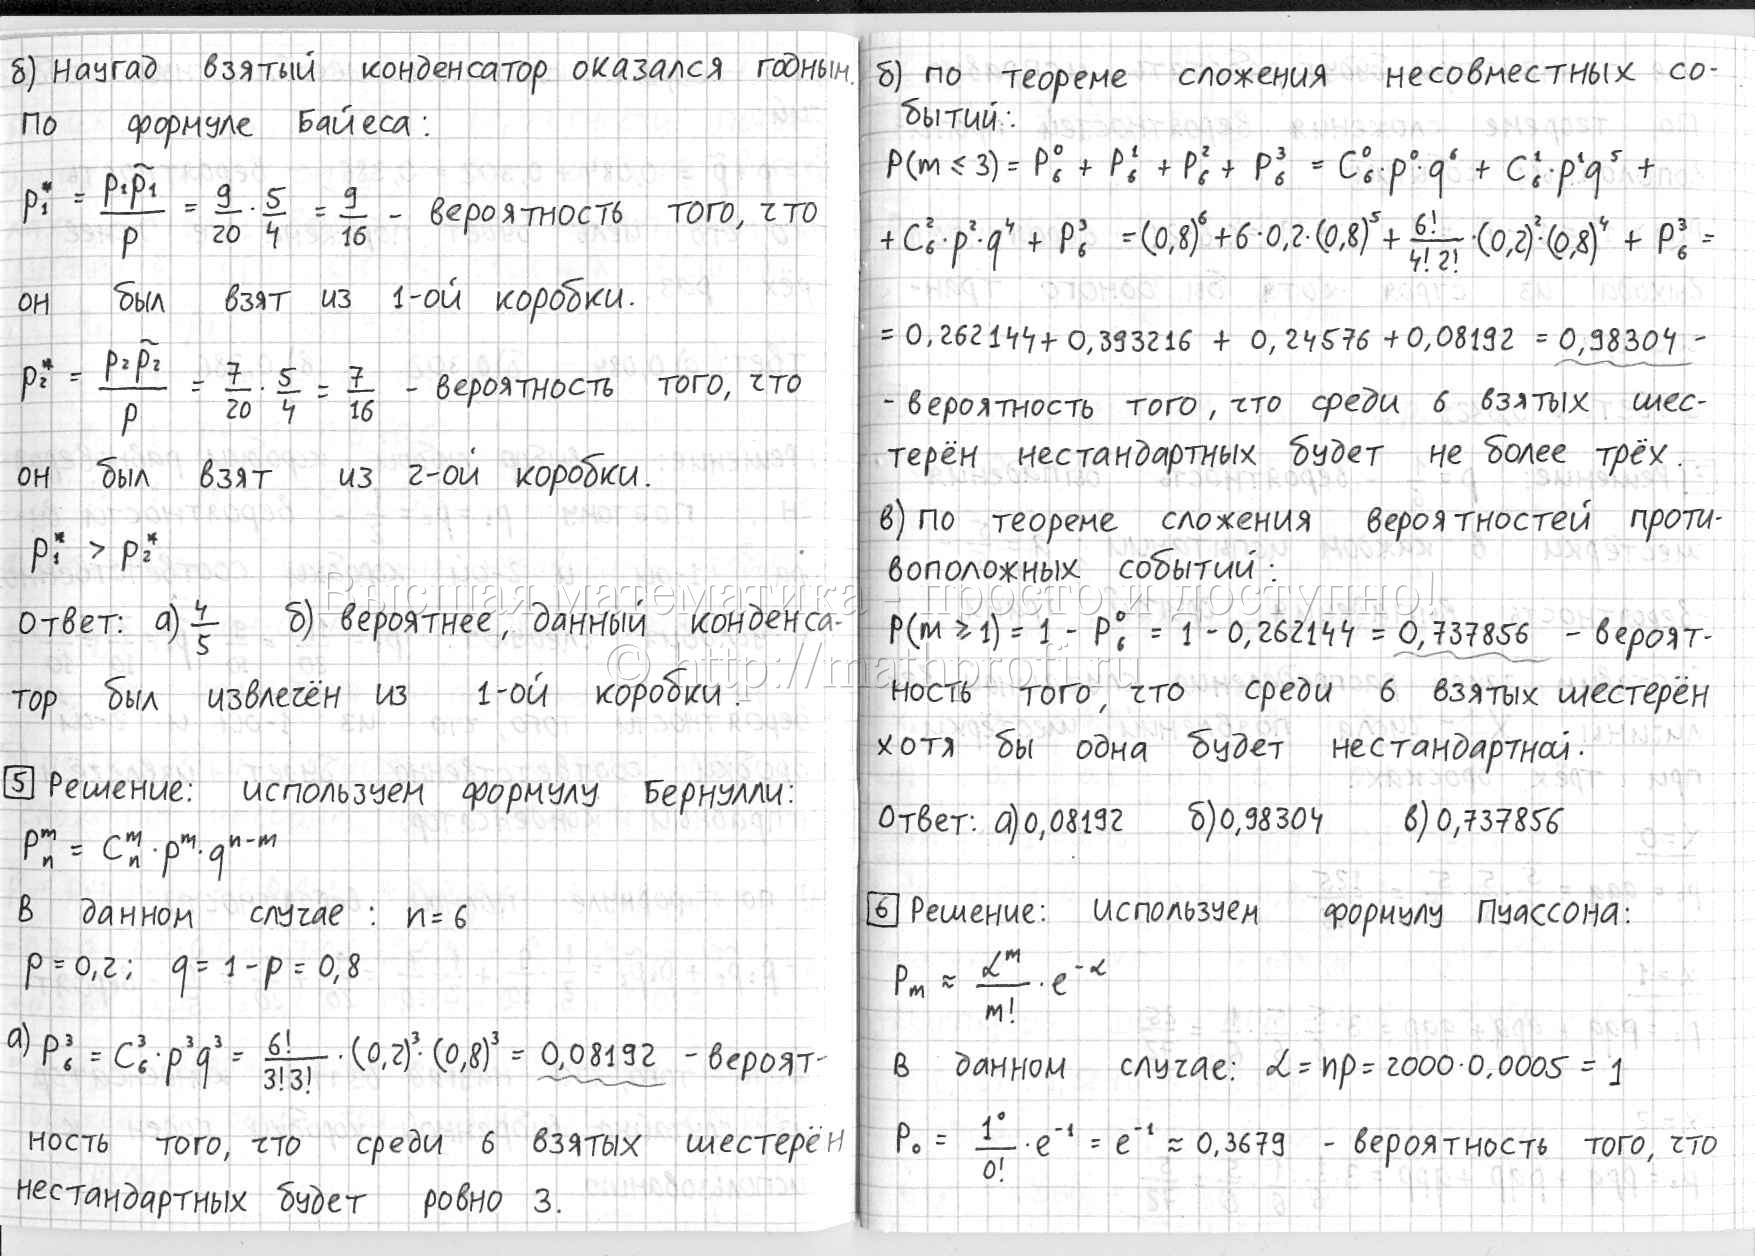 б) Наугад взятый конденсатор оказался годным.
По формуле Байеса:
p₁* = p₁p̃₁/p = 9/20 · 5/4 = 9/16 - вероятность того, что
он был взят из 1-ой коробки.
p₂* = p₂p̃₂/p = 7/20 · 5/4 = 7/16 - вероятность того, что
он был взят из 2-ой коробки.
p₁* > p₂*
Ответ: а) 4/5 б) вероятнее, данный конденса-
тор был извлечён из 1-ой коробки.
5 Решение: используем формулу Бернулли:
Pₙᵐ = Cₙᵐ · pᵐ · qⁿ⁻ᵐ
В данном случае: n=6
p = 0,2; q = 1 - p = 0,8
а) P₆³ = C₆³ · p³q³ = 6!/(3!3!) · (0,2)³ · (0,8)³ = 0,08192 - вероят-
ность того, что среди 6 взятых шестерён
нестандартных будет ровно 3.
б) по теореме сложения несовместных со-
бытий:
P(m ≤ 3) = P₆⁰ + P₆¹ + P₆² + P₆³ = C₆⁰ · p⁰ · q⁶ + C₆¹ · p¹q⁵ +
+ C₆² · p² · q⁴ + P₆³ = (0,8)⁶ + 6 · 0,2 · (0,8)⁵ + 6!/(4!2!) · (0,2)² · (0,8)⁴ + P₆³ =
= 0,262144 + 0,393216 + 0,24576 + 0,08192 = 0,98304 -
- вероятность того, что среди 6 взятых шес-
терён нестандартных будет не более трёх.
в) По теореме сложения вероятностей проти-
воположных событий:
P(m ≥ 1) = 1 - P₆⁰ = 1 - 0,262144 = 0,737856 - вероят-
ность того, что среди 6 взятых шестерён
хотя бы одна будет нестандартной.
Ответ: а) 0,08192 б) 0,98304 в) 0,737856
6 Решение: используем формулу Пуассона:
Pₘ ≈ αᵐ/m! · e^(-α)
В данном случае: α = np = 2000 · 0,0005 = 1
P₀ = 1⁰/0! · e⁻¹ = e⁻¹ ≈ 0,3679 - вероятность того, что
Высшая математика - просто и доступно!
© http://mathprofi.ru